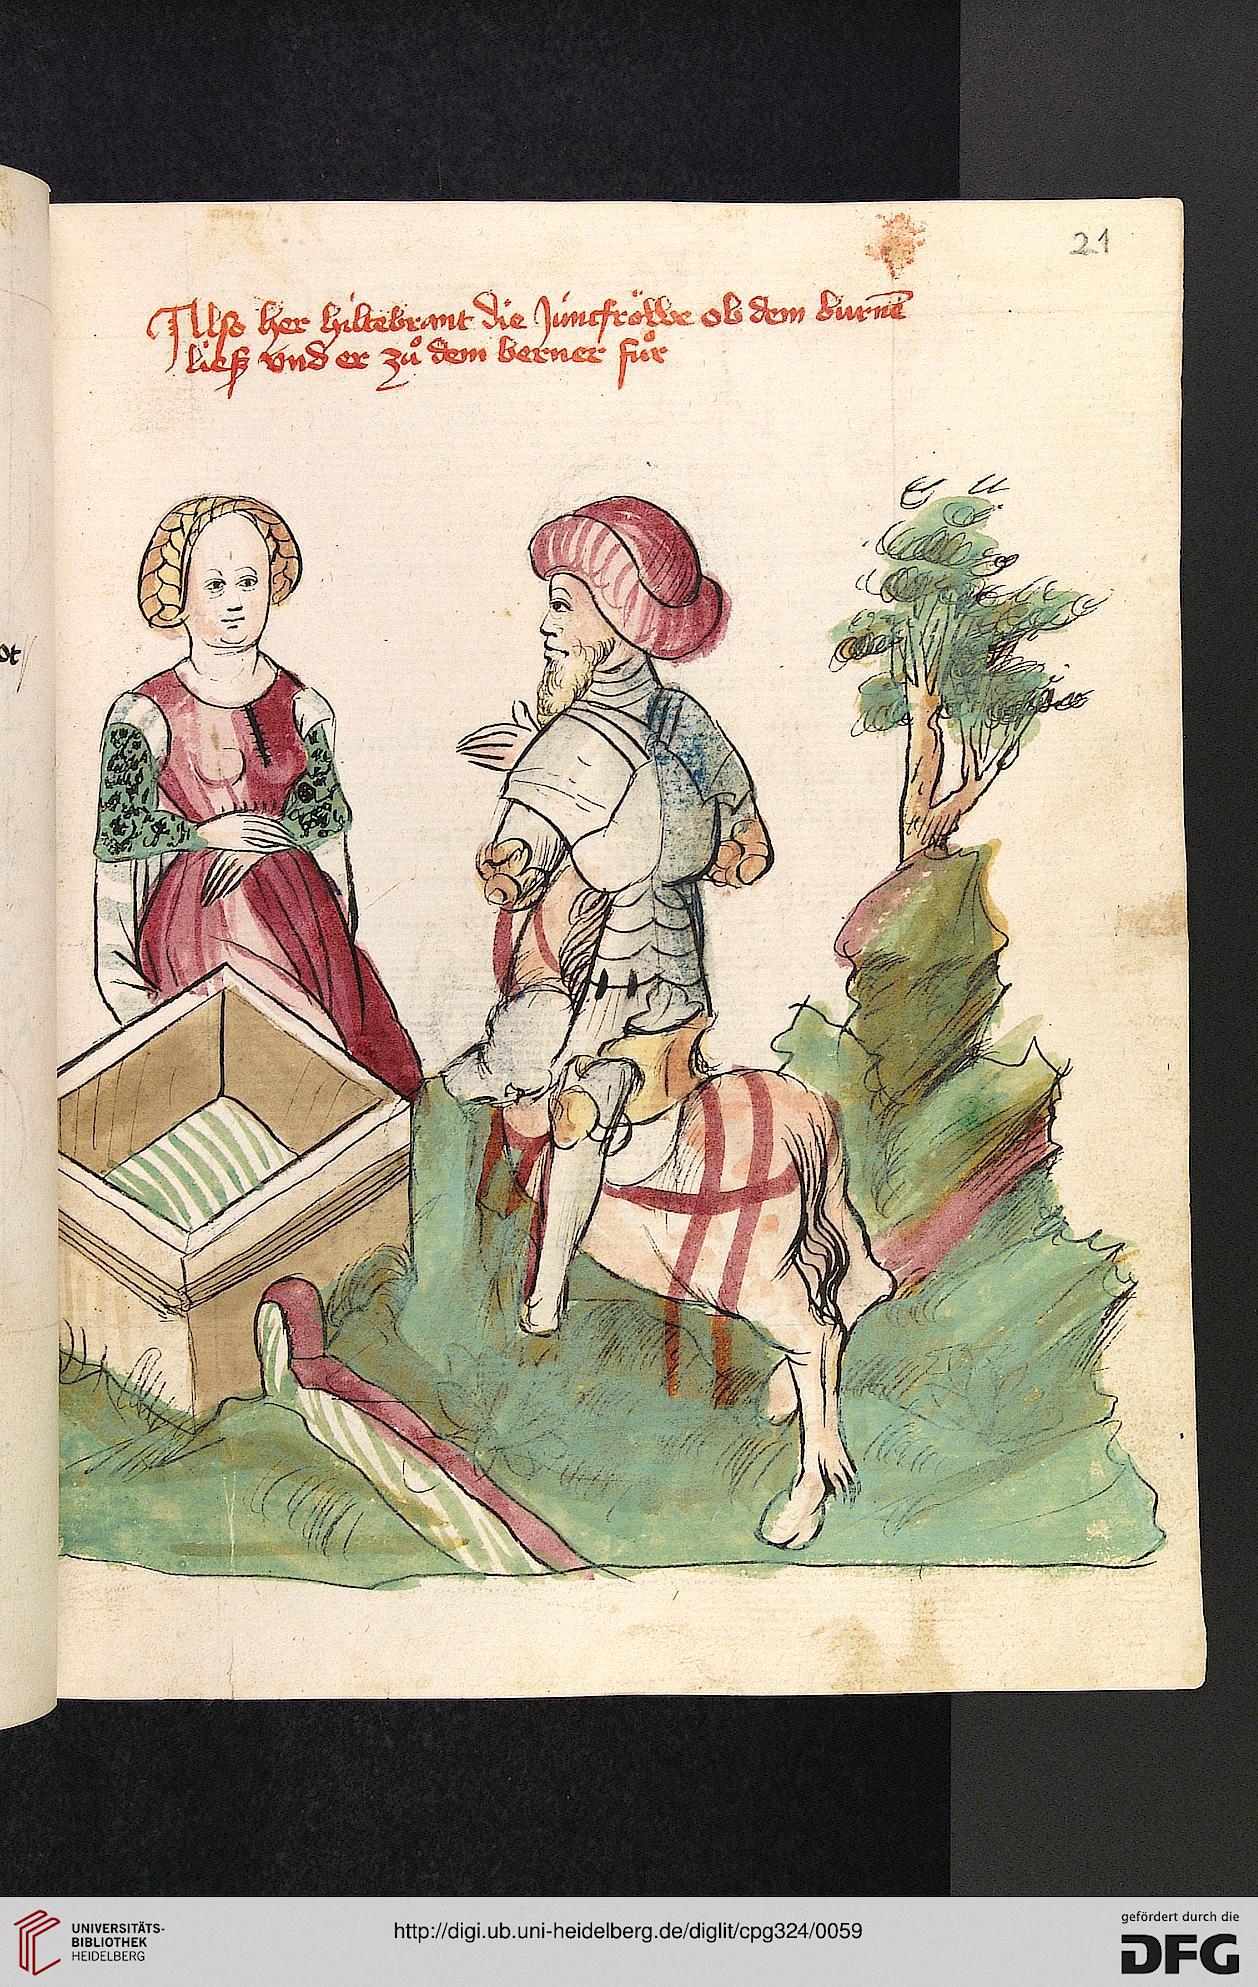 21
Also her hiltebrant die Juncfröwe ob dem burnē
ließ vnd er zuͦ dem berner fuͦr
UNIVERSITÄTS-
BIBLIOTHEK
HEIDELBERG
http://digi.ub.uni-heidelberg.de/diglit/cpg324/0059
gefördert durch die
DFG